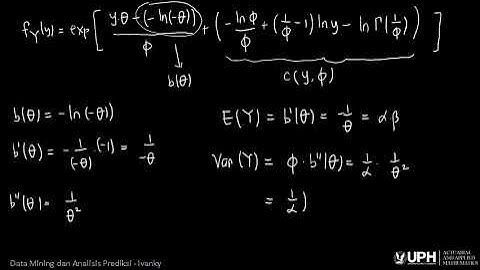 f_Y(y) = exp [ (yθ - (-ln(-θ))) / ϕ + ( -lnϕ/ϕ + (1/ϕ - 1) ln y - ln Γ(1/ϕ) ) ]
b(θ)
c(y, ϕ)
b(θ) = -ln(-θ)
E(Y) = b'(θ) = -1/θ = αβ
b'(θ) = -1/(-θ) · (-1) = 1/-θ
Var(Y) = ϕ · b''(θ) = 1/α · 1/θ²
b''(θ) = 1/θ²
= 1/α )
Data Mining dan Analisis Prediksi - Ivanky
UPH
ACTUARIAL
AND APPLIED
MATHEMATICS